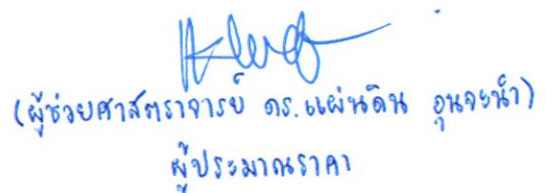 (ผู้ช่วยศาสตราจารย์ ดร.แผ่นดิน อุนจะนำ)
ผู้ประมาณราคา